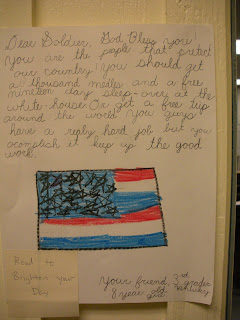 Dear Soldier, God Bless you
you are the people that pretect
our country you should get
a thousand medles and a free
nineteen day sleep-over at the
white-house. Or get a free trip
around the world you guys
have a realy hard job but you
acomplish it kep up the good
work.
Read to
Brighten your
Day
your friend, 3rd grader
8 year old